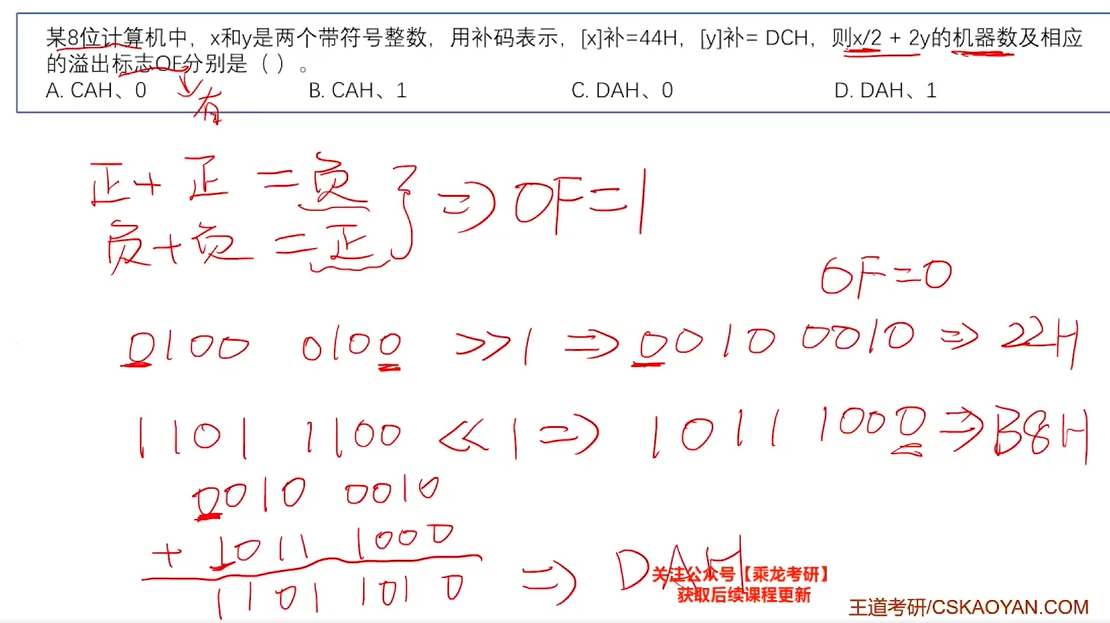 某8位计算机中，x和y是两个带符号整数，用补码表示，[x]补=44H，[y]补= DCH，则x/2 + 2y的机器数及相应
的溢出标志OF分别是（ ）。
A. CAH、0 B. CAH、1 C. DAH、0 D. DAH、1
有
正+正=负
负+负=正 } => OF=1
OF=0
0100 0100 >>1 => 0010 0010 => 22H
1101 1100 <<1 => 1011 1000 => B8H
0010 0010
+ 1011 1000
1101 1010 => DAH
关注公众号【乘龙考研】
获取后续课程更新
王道考研/CSKAOYAN.COM